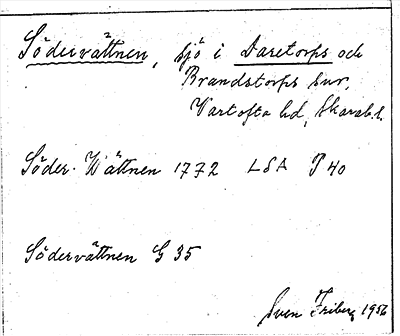 Södervättnen, sjö i Daretorps och
Brandstorps snr,
Vartofta hd, Skarab.l.
Söder-Wättnen 1772 LSA P 40
Södervättnen G 35
Sven Friberg 1956